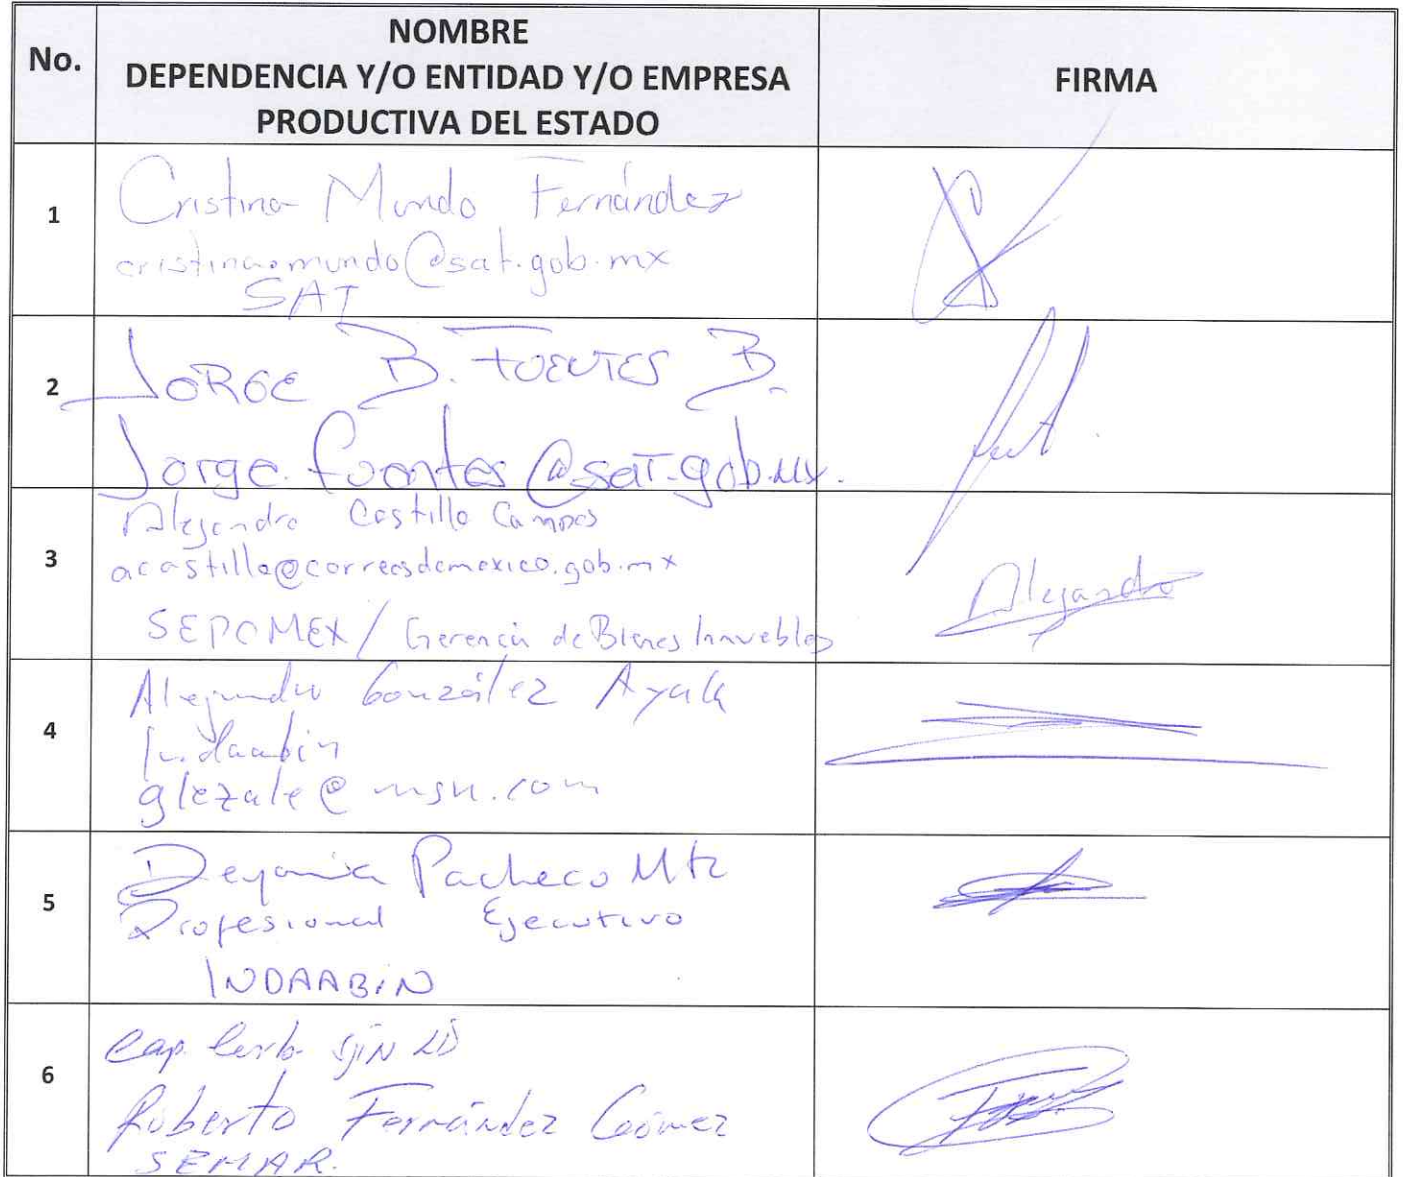 No.
NOMBRE
DEPENDENCIA Y/O ENTIDAD Y/O EMPRESA
PRODUCTIVA DEL ESTADO
FIRMA
1
Cristina Mundo Fernández
cristina.mundo@sat.gob.mx
SAT
2
JORGE B. FUENTES B.
Jorge.fuentes@sat.gob.mx.
3
Alejandro Castillo Campos
acastillo@correosdemexico.gob.mx
SEPOMEX / Gerencia de Bienes Inmuebles
Alejandro
4
Alejandro González Ayala
Indaabin
glezale@msn.com
5
Deyanira Pacheco Mtz
Profesional Ejecutivo
INDAABIN
6
Cap. Corb.
Roberto Fernández Gómez
SEMAR.